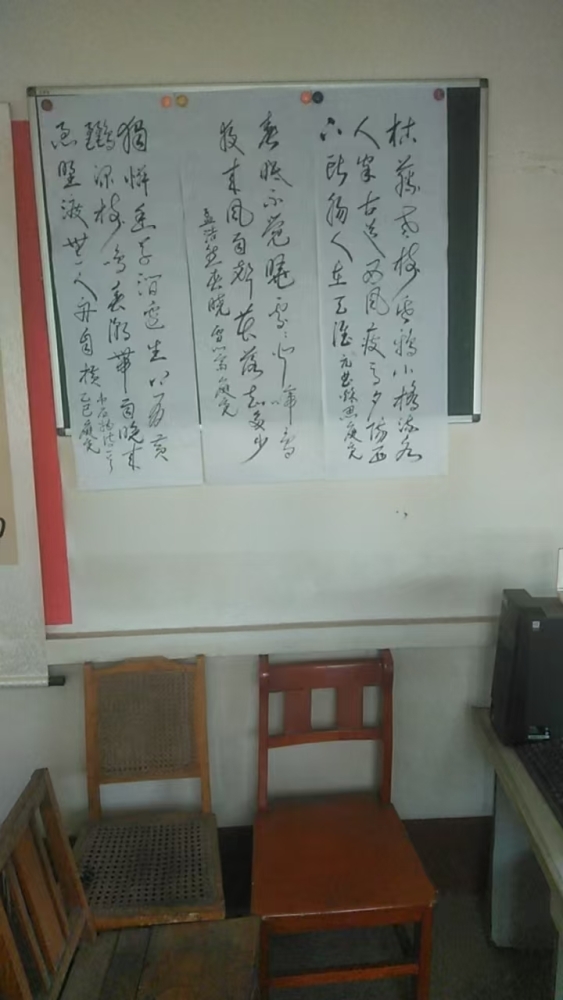 枯藤老树昏鸦小桥流水
人家古道西风瘦马夕阳西
下断肠人在天涯
元曲秋思
春眠不觉晓处处闻啼鸟
夜来风雨声花落知多少
孟浩然春晓
獨怜幽草涧边生上有黄
鹂深树鸣春潮带雨晚来
急野渡无人舟自横
乙巳